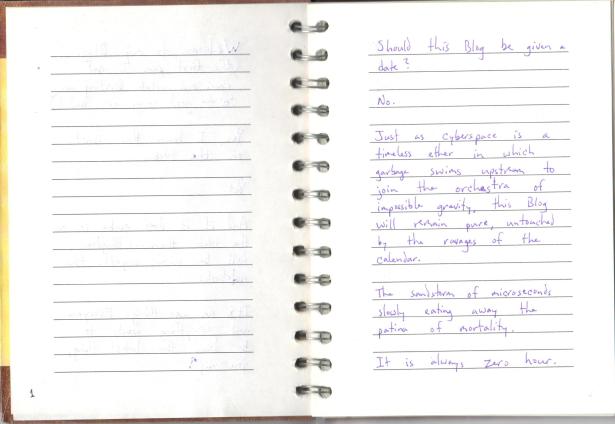 1
Should this Blog be given a
date?
No.
Just as Cyberspace is a
timeless ether in which
garbage swims upstream to
join the orchestra of
impossible gravity, this Blog
will remain pure, untouched
by the ravages of the
calendar.
The sandstorm of microseconds
slowly eating away the
patina of mortality.
It is always zero hour.